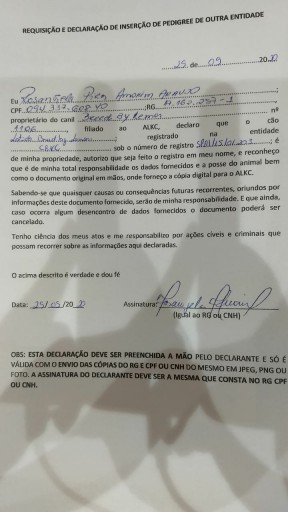 REQUISIÇÃO E DECLARAÇÃO DE INSERÇÃO DE PEDIGREE DE OUTRA ENTIDADE
25, de 09 2020
Eu Rosangela Pires Amorim Araujo
CPF RG
proprietário do canil nº
1106, filiado ao ALKC, declaro que o cão
registrado na entidade
sob o número de registro ; é
de minha propriedade, autorizo que seja feito o registro em meu nome, e reconheço
que é de minha total responsabilidade os dados fornecidos e a posse do animal bem
como o documento original em mãos, onde forneço a cópia digital para o ALKC.
Sabendo-se que quaisquer causas ou consequências futuras recorrentes, oriundos por
informações deste documento fornecido, serão de minha responsabilidade. E que ainda,
caso ocorra algum desencontro de dados fornecidos o documento poderá ser
cancelado.
Tenho ciência dos meus atos e me responsabilizo por ações cíveis e criminais que
possam recorrer sobre as informações aqui declaradas.
O acima descrito é verdade e dou fé
Data: 25/09/2020 Assinatura:
(Igual ao RG ou CNH)
OBS: ESTA DECLARAÇÃO DEVE SER PREENCHIDA A MÃO PELO DECLARANTE E SÓ É
VÁLIDA COM O ENVIO DAS CÓPIAS DO RG E CPF OU CNH DO MESMO EM JPEG, PNG OU
FOTO. A ASSINATURA DO DECLARANTE DEVE SER A MESMA QUE CONSTA NO RG CPF
OU CNH.